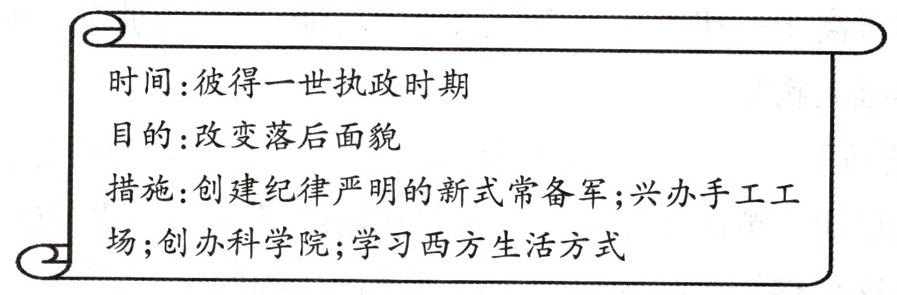 时间:彼得一世执政时期
目的:改变落后面貌
措施:创建纪律严明的新式常备军;兴办手工工
场;创办科学院;学习西方生活方式